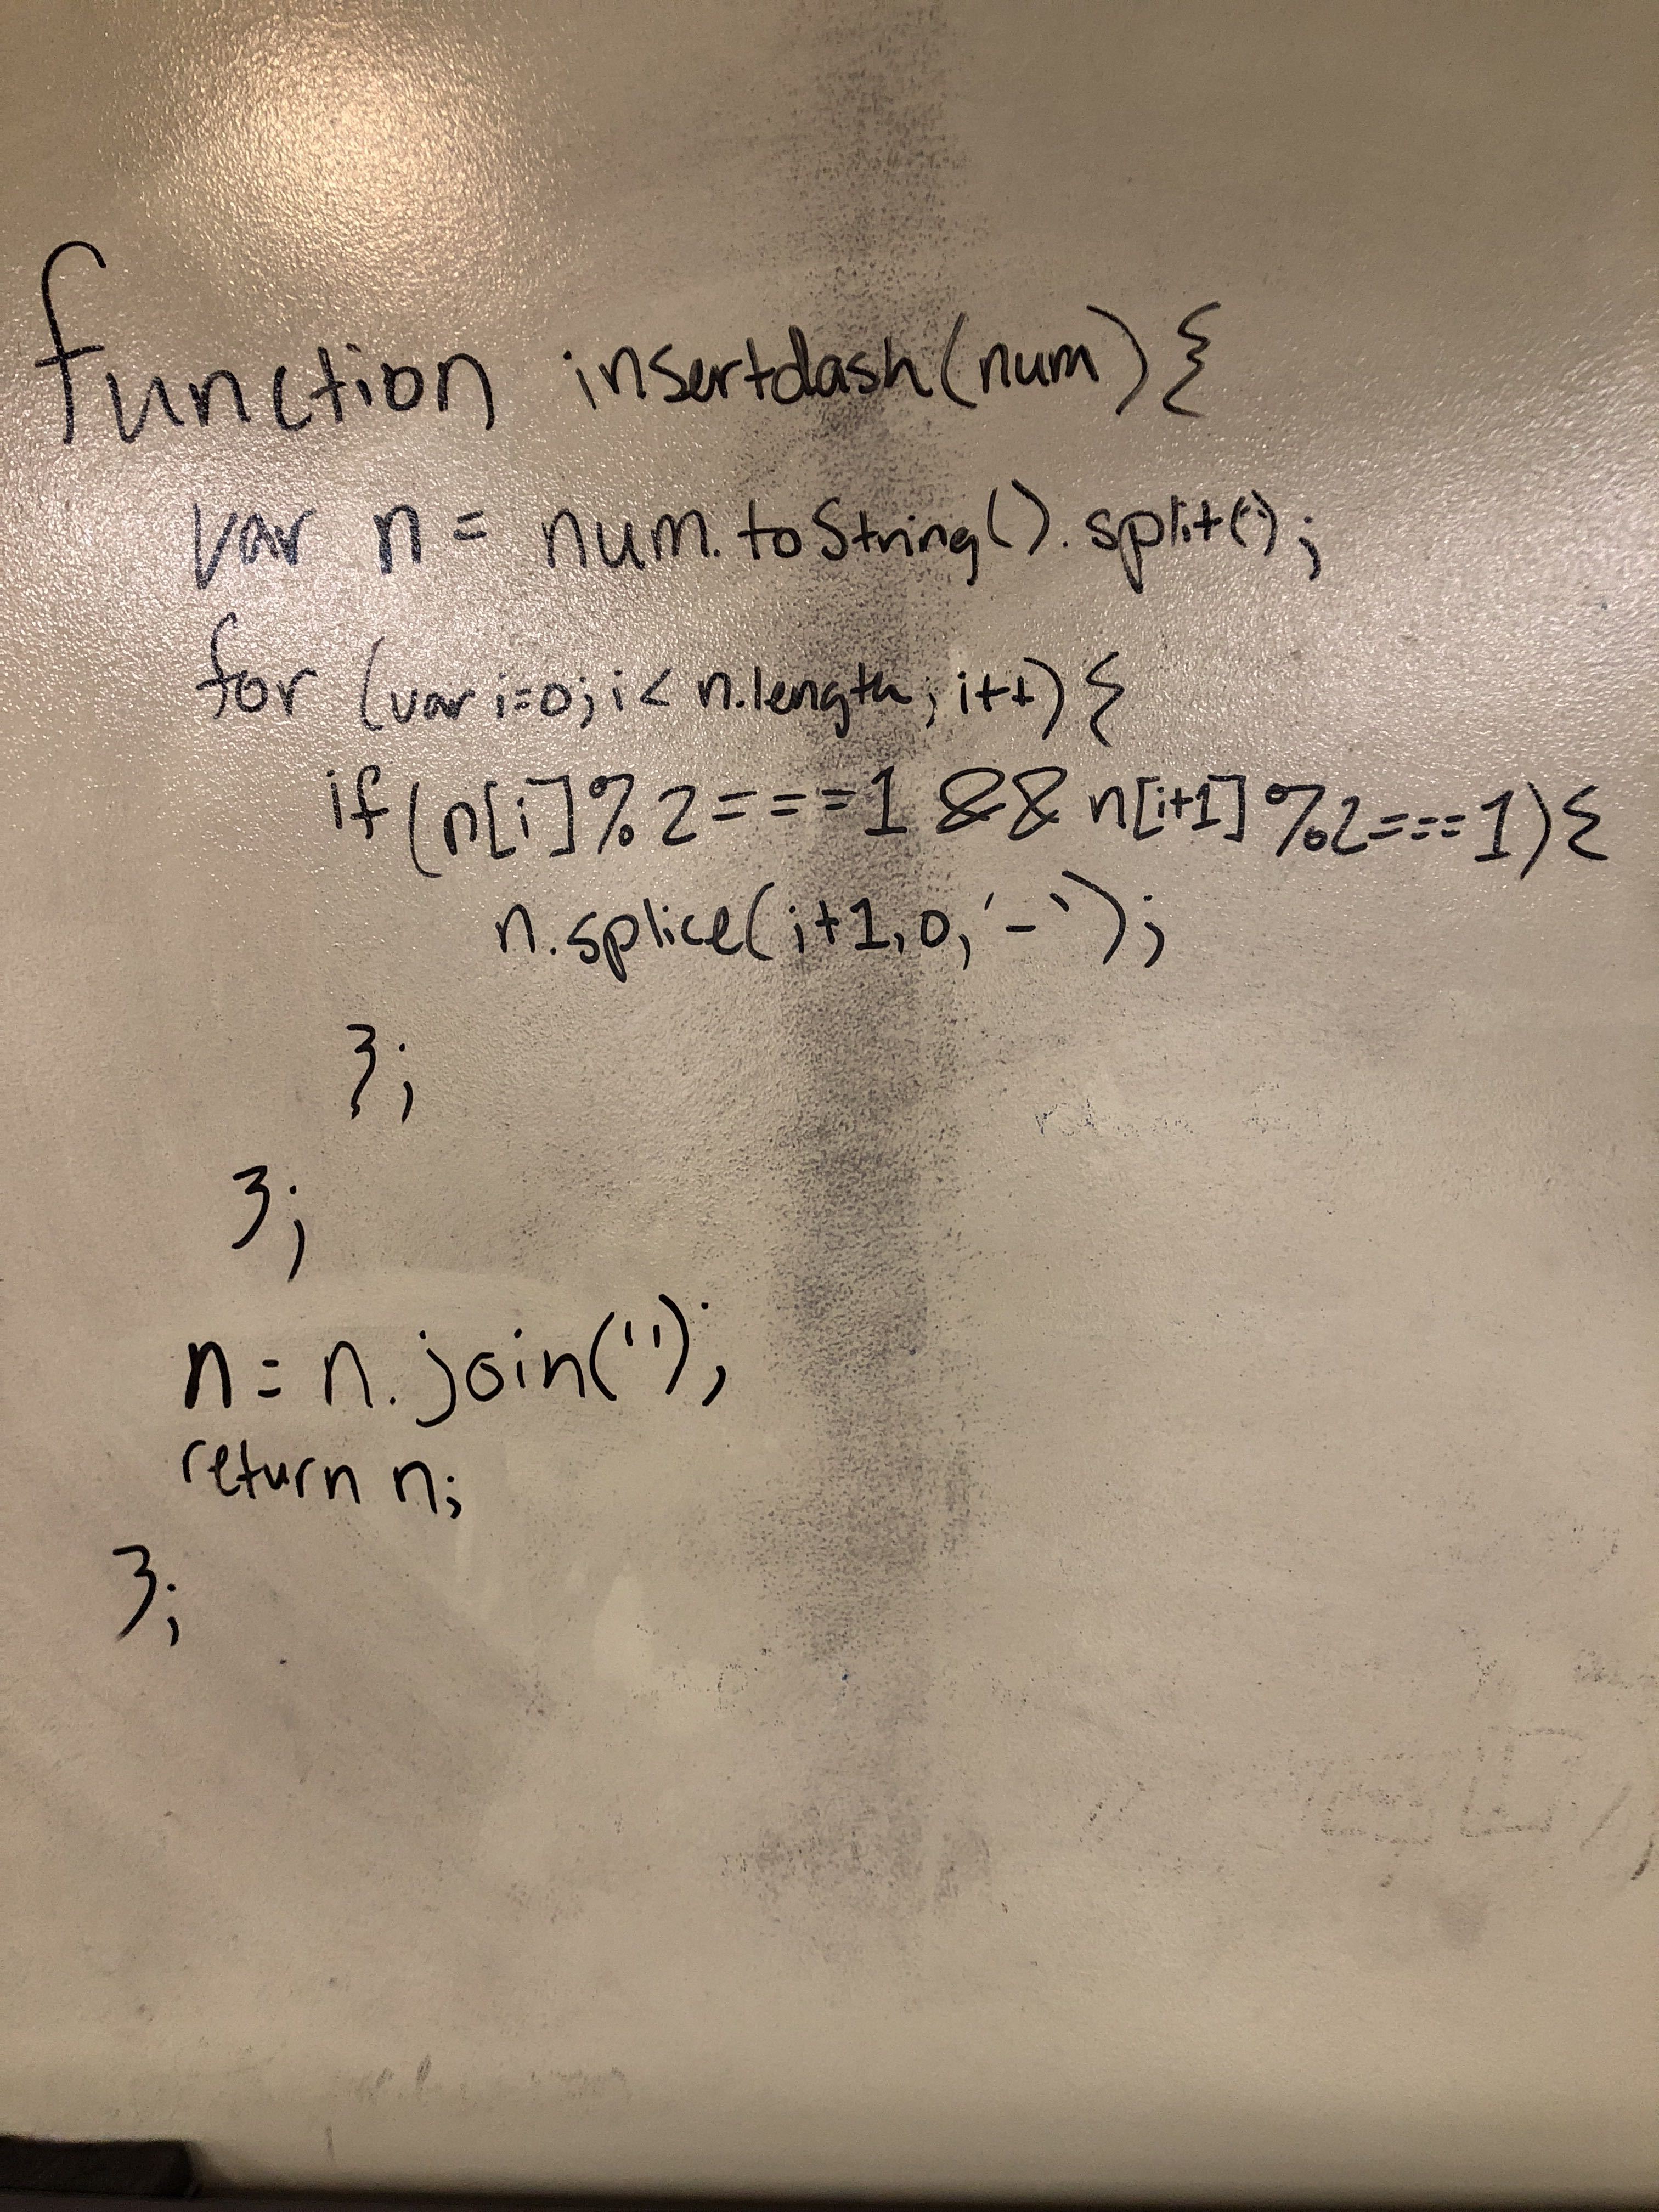 function insertdash(num){
var n = num.toString().split('');
for (var i=0; i< n.length; i++) {
if(n[i]%2===1 && n[i+1]%2===1){
n.splice(i+1,0,'-');
};
};
n = n.join('');
return n;
};